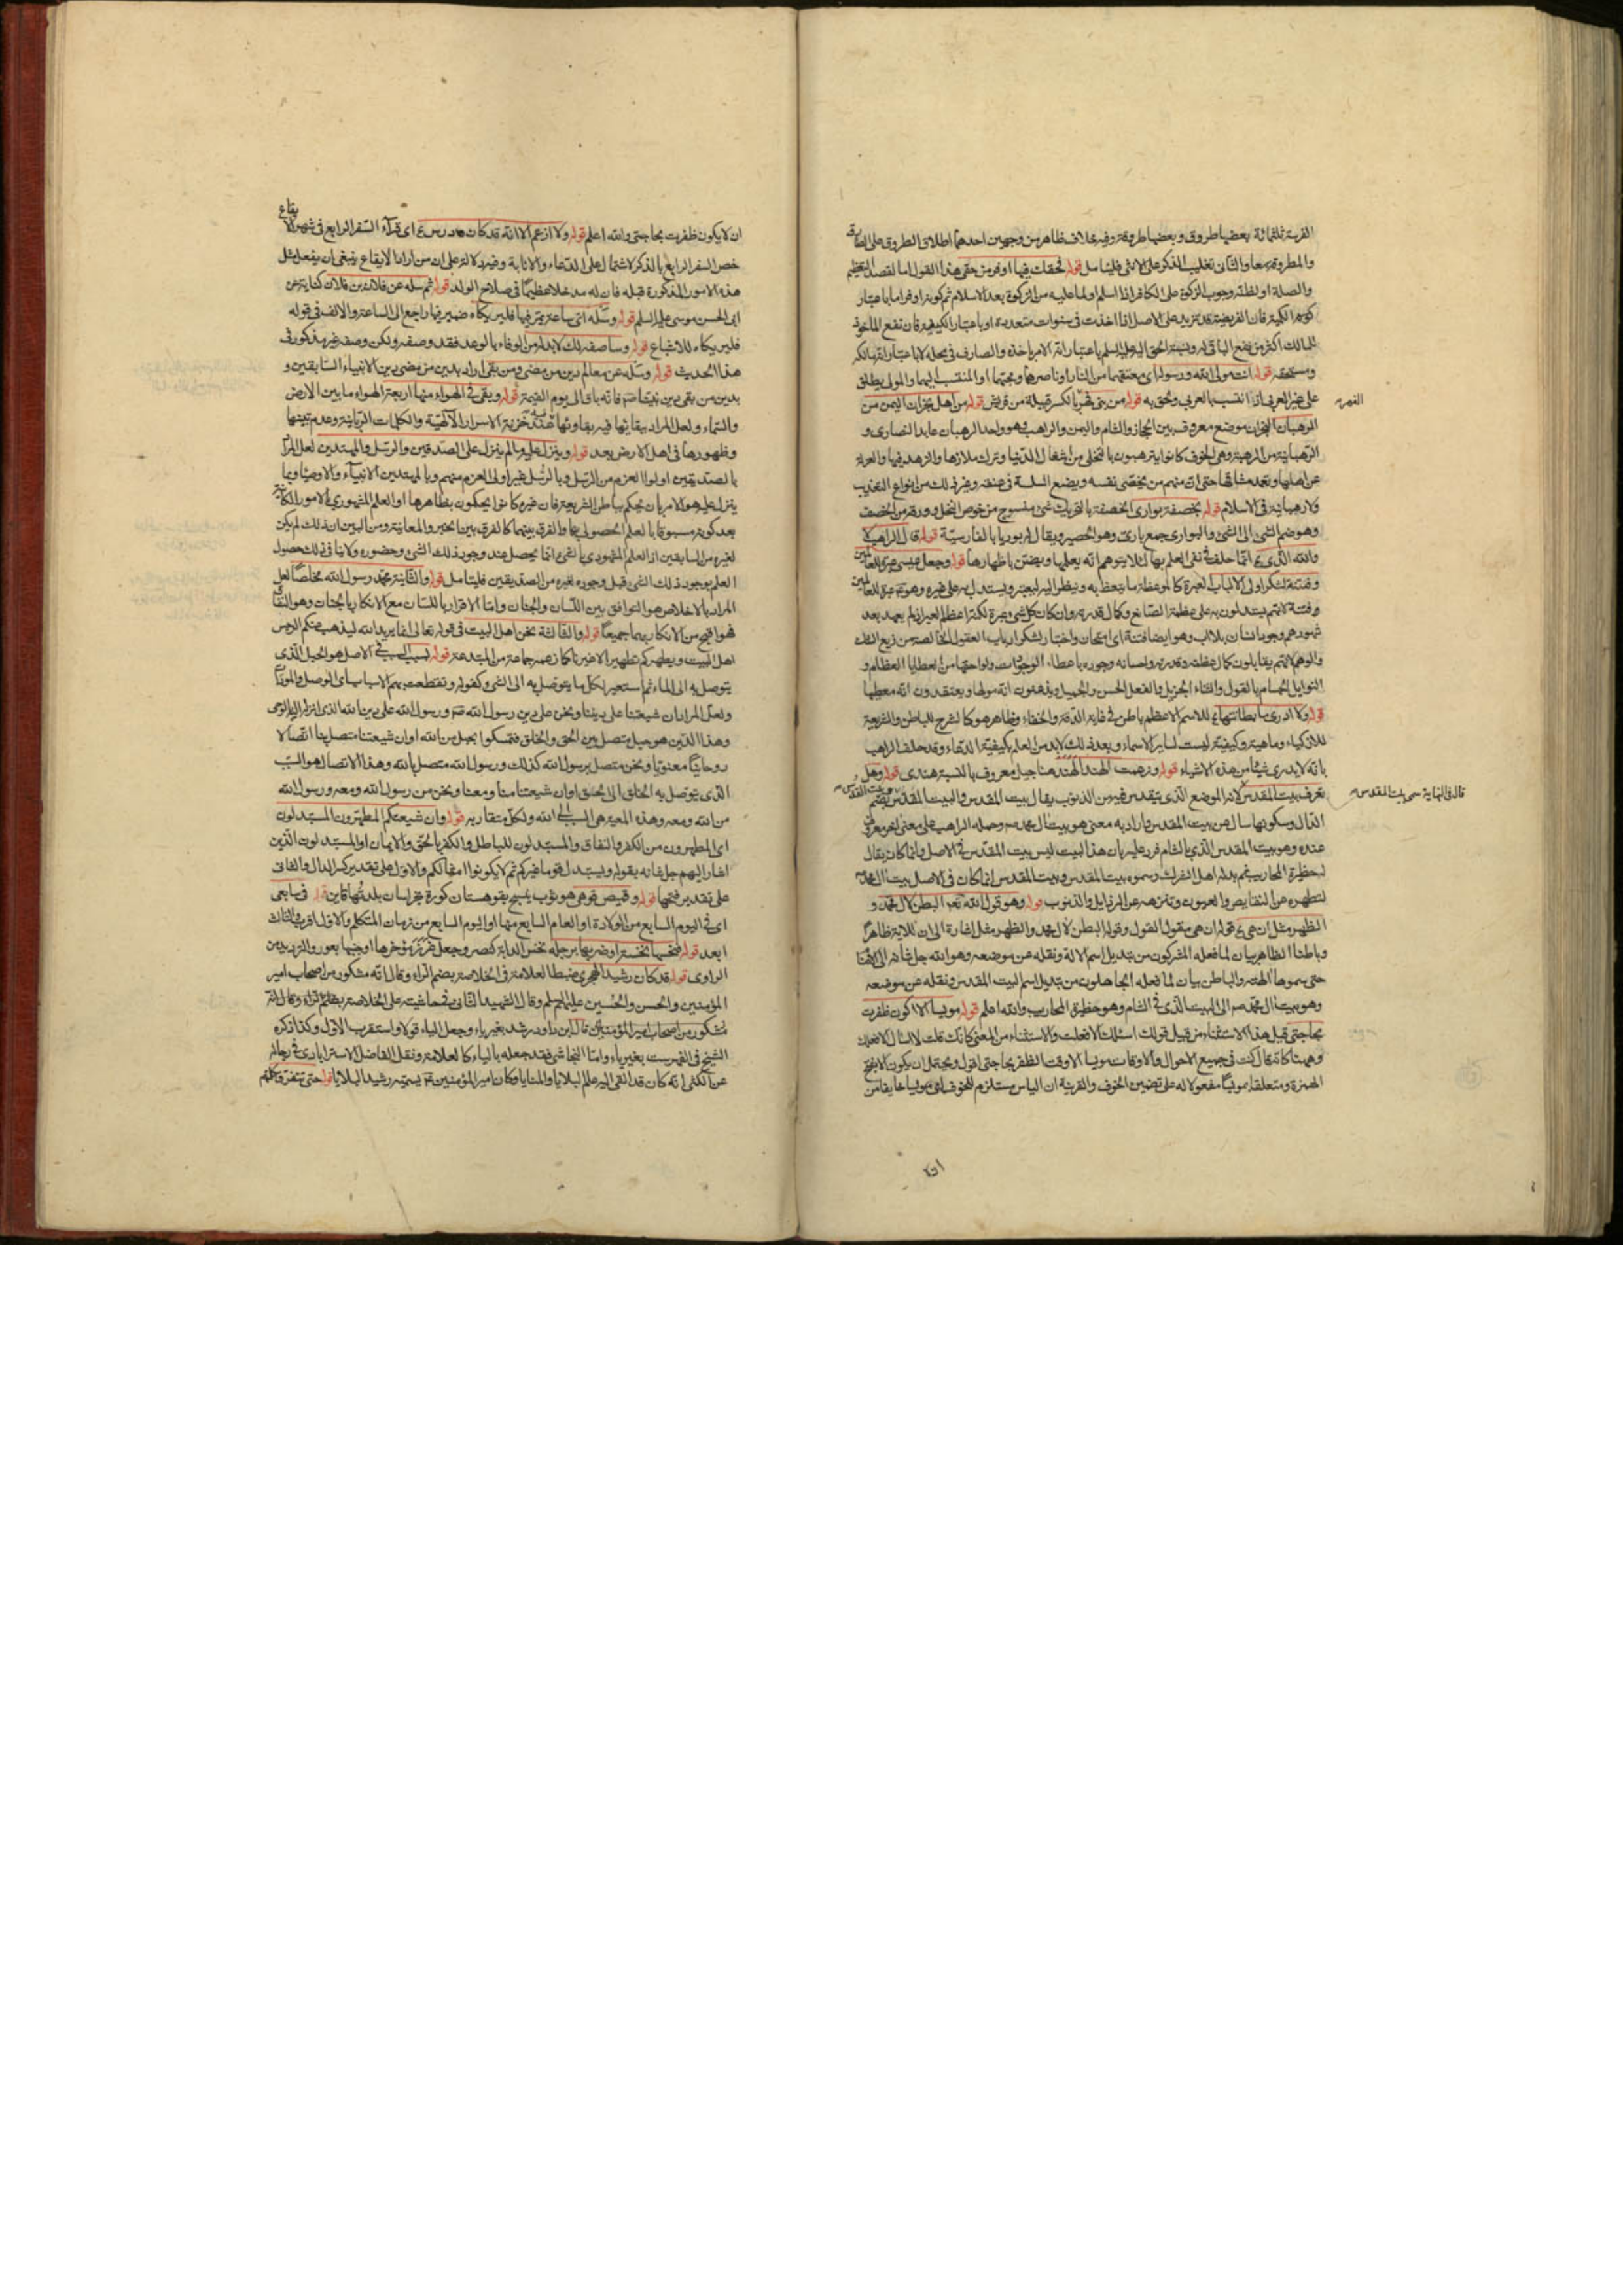 الفرسة ثلثمائة بعضها طروق وبعضها طروقة وفيه خلاف ظاهر من وجهين احدهما اطلاق الطروق على
والمطروقة معا والثانى تغليب المذكر على الانثى فليتامل قوله فحققت فيها اوفر من حقى هذا القول اما لقصد التعظيم
والصلة او لظنه وجوب الزكوة على الكافر اذا اسلم ولما عليه من الزكوة بعد الاسلام ثم كونها وفر اما باعتبار
الكمية فان الفريضة قد تزيد على الاصل اذا اخذت فى سنوات متعددة او باعتبار الكيفية فان نفع الماخوذ
للمالك اكثر من نفع الباقى له ونسبة الحق اليه عليه السلم باعتبار انه الامر باخذه والصارف فى محله لا باعتبار انه مالكه
ومستحقه قوله انت مولى الله ورسوله اى معتقهما من النار او ناصرهما ومحبهما او المنتسب اليهما والمولى يطلق
على غير العربى اذا انتسب بالعربى ولحق به قوله من بنى فهر بالكسر قبيلة من قريش قوله من اهل نجران اليمن من
الفهر
الرهبان النجران موضع معروف بين الحجاز والشام واليمن والراهب هو واحد الرهبان عابد النصارى و
الرهبانية من الرهبة وهى الخوف كانوا يترهبون بالتخلى من اشغال الدنيا وترك ملاذها والزهد فيها والعزلة
عن اهلها وتعمد مشاقها حتى ان منهم من يخصى نفسه ويضع السلسة فى عنقه وغير ذلك من انواع التعذيب
ولا رهبانية فى الاسلام قوله بخصفة بوارى الخصفة بالتحريك شئ منسوج من خوص النخل وورقه من الخصف
وهو ضم الشئ الى الشئ والبوارى جمع بارى وهو الحصير ويقال له بوريا بالفارسية قوله قال الراهب لا
والله الذى انما حلف فى نفى العلم بها لئلا يتوهم انه يعلمها ويضن باظهارها قوله وجعل عيسى عبرة للعالمين
وفتنة لشكر اولى الالباب العبرة كالموعظة ما يتعظ به وينظر اليه ليعتبر ويستدل به على غيره وهو عبرة للعالمين
وفتنة لانهم يستدلون به على عظمة الصانع وكمال قدرته وان كان كل شئ عبرة لكنه اعظم العبر اذ لم يعهد بعد
شهودهم وجود انسان بلا اب وهو ايضا فتنة اى امتحان واختبار لشكر ارباب العقول الخالصة من زيغ الشك
والوهم لانهم يقابلون كمال عظمته وقدرته واحسانه وجوده باعطاء الوجودات ولواحقها من العطايا العظام و
النوايل الجسام بالقول والثناء الجزيل والفعل الحسن والجميل ويذعنون انه مولها ويعتقدون انه معطيها
قوله ولا ادرى ما بطانتها للاسم الاعظم باطن فى غاية الدقة والخفاء وظاهر هو كالشرح للباطن والشريعة
للاذكياء وماهية وكيفية ليست لساير الاسماء وبعد ذلك لا بد من العلم بكيفية الدعاء وقد حلف الراهب
بانه لا يدرى شيئا من هذه الاشياء قوله وزعمت الهند الهند هنا جيل معروف بالنسبة هندى قوله وهل
تعرف بيت المقدس لانه الموضع الذى يتقدس فيه من الذنوب يقال بيت المقدس والبيت المقدس بضم
قال فى النهاية سمى بيت المقدس
الدال وسكونها سال عن بيت المقدس واراد به معنى هو بيت ال محمد ص وحمله الراهب على معنى اخر معروف
عنده وهو بيت المقدس الذى بالشام فرد عليه بان هذا البيت ليس بيت المقدس فى الاصل وانما كان يقال
له حظيرة المحاريب ثم بدله اهل الشرك وسموه بيت المقدس وبيت المقدس انما كان فى الاصل بيت ال محمد
لتطهره عن النقايص والعيوب وتنزهه عن الرذايل والذنوب قوله وهو قول الله تعم البطن لال محمد و
الظهر مثل ان هى قوله ان هى مقول القول وقوله البطن لال محمد والظهر مثل اشارة الى ان للاية ظاهرا
وباطنا الظاهر بيان لما فعله المشركون من تبديل اسم الالة ونقله عن موضعه وهو الله جل شانه الى الهتنا
حتى سموها الهته والباطن بيان لما فعله الجاهلون من تبديل اسم البيت المقدس ونقله عن موضعه
وهو بيت ال محمد ص الى البيت الذى فى الشام وهو حظيرة المحاريب والله اعلم قوله مويسا الا اكون ظفرت
بحاجتى قيل هذا الاستثناء من قبيل قولك اسئلك الا فعلت والاستثناء من المعنى كانك قلت لا اسال الا فعلك
وههنا كانه قال كنت فى جميع الاحوال والاوقات مويسا الا وقت الظفر بحاجتى اقول ويحتمل ان يكون الا بفتح
الهمزة ومتعلقا بمويسا مفعولا له على تضمين الخوف والقرينة ان الياس مستلزم للخوف اى مويسا خايفا من
ان لا يكون ظفرت بحاجتى والله اعلم قوله ولا ازعم الا انه قد كان درس اى قرآءة السفر الرابع فى شهر لا
يقاع
خص السفر الرابع بالذكر لاشتماله على الدعاء والانابة وفيه دلالة على ان من اراد الايقاع ينبغى ان يفعل مثل
هذه الامور المذكورة قبله فان له مدخلا عظيما فى صلاح الولد قوله ثم سله عن فلان بن فلان كناية عن
ابى الحسن موسى عليه السلم قوله وسله اى ساعة يمر فيها فليريكاه ضمير فيها راجع الى الساعة والالف فى قوله
فليريكاه للاشباع قوله وساصفه لك لا بد له من الوفاء بالوعد فقد وصفه ولكن وصفه غير مذكور فى
هذا الحديث قوله وسله عن معالم دين من مضى ومن بقى اراد بدين من مضى دين الانبياء السابقين و
بدين من بقى دين نبينا ص فانه باق الى يوم القيمة قوله ويبقى فى الهواء منها اربعة الهواء ما بين الارض
والسماء ولعل المراد ببقائها فيه بقاوها عند خزنة الاسرار الالهية والكلمات الربانية وعدم تبينها
وظهورها فى اهل الارض بعد قوله وينزل عليه ما لم ينزل على الصديقين والرسل والمهتدين لعل المراد
بالصديقين اولوا العزم من الرسل وبالرسل غير اولى العزم منهم وبالمهتدين الانبياء والاوصياء وما
ينزل عليه هو الامر بان يحكم بباطن الشريعة فان غيره كانوا يحكمون بظاهرها او العلم الشهودى بالامور الكاينة
بعد كونه مسبوقا بالعلم الحصولى بها والفرق بينهما كالفرق بين الخبر والمعاينة ومن البين ان ذلك لم يكن
لغيره من السابقين اذ العلم الشهودى بالشئ انما يحصل عند وجود ذلك الشئ وحضوره ولا ينافى ذلك حصول
العلم بوجود ذلك الشئ قبل وجوده لغيره من الصديقين فليتامل قوله والثانية محمد رسول الله مخلصا لعل
المراد بالاخلاص هو التوافق بين اللسان والجنان واما الاقرار باللسان مع الانكار بالجنان وهو النفاق
فهو اقبح من الانكار بهما جميعا قوله والثالثة نحن اهل البيت فى قوله تعالى انما يريد الله ليذهب عنكم الرجس
اهل البيت ويطهركم تطهيرا لا غيرنا كما زعمه جماعة من المبتدعة قوله بسبب السبب فى الاصل هو الحبل الذى
يتوصل به الى الماء ثم استعير لكل ما يتوصل به الى الشئ وكقوله وتقطعت بهم الاسباب اى الوصل والمودات
ولعل المراد ان شيعتنا على ديننا ونحن على دين رسول الله ص ورسول الله على دين الله الذى انزله اليه بالوحى
وهذا الدين هو حبل متصل بين الحق والخلق فتمسكوا بحبل من الله او ان شيعتنا متصل بنا اتصالا
روحانيا معنويا ونحن متصل برسول الله كذلك ورسول الله متصل بالله وهذا الاتصال هو السبب
الذى يتوصل به الخلق الى الحق او ان شيعتنا منا ومعنا ونحن من رسول الله ومعه ورسول الله
من الله ومعه وهذه المعية هى السبب الى الله والكل متقاربه قوله وان شيعتكم المطهرون المستبدلون
اى المطهرون من الكفر والنفاق والمستبدلون للباطل والكفر بالحق والايمان او المستبدلون الذين
اشار اليهم جل شانه بقوله ويستبدل قوما غيركم ثم لا يكونوا امثالكم والاول على تقدير كسر الدال والثانى
على تقدير فتحها قوله وقميص قوهى هو ثوب ينسج بقوهستان كورة بخراسان بلدتها قاين قوله فى سابعى
اى فى اليوم السابع من الولادة او العام السابع منها او اليوم السابع من زمان المتكلم والاول اقرب والثالث
ابعد قوله فنخسها نخسة او ضربها برجله نخس الدابة كنصر وجعل غرز مؤخرها او جنبها بعود والترديد من
الراوى قوله قد كان رشيد الهجرى ضبطه العلامة فى الخلاصة بضم الراء وقال انه مشكور من اصحاب امير
المؤمنين والحسن والحسين عليهم السلم وقال الشهيد الثانى فى حاشيته على الخلاصة بضم الراء وقال انه
مشكور من اصحاب امير المؤمنين قال ابن داود رشد بغير ياء وجعل الياء قولا واستقرب الاول وكذا ذكره
الشيخ فى الفهرست بغير ياء واما النجاشى فقد جعله بالياء كالعلامة ونقل الفاضل الاسترابادى فى رجاله
عن الكشى انه كان قد القى اليه علم البلايا والمنايا وكان امير المؤمنين يسميه رشيد البلايا قوله حتى تتفرق كلمتهم